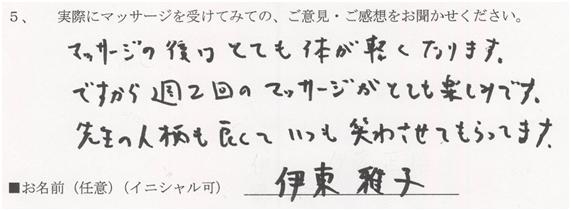 ５、　実際にマッサージを受けてみての、ご意見・ご感想をお聞かせください。
マッサージの後はとても体が軽くなります。
ですから週２回のマッサージがとても楽しみです。
先生の人柄も良くていつも笑わせてもらってます。
■お名前（任意）（イニシャル可）　伊東 雅子